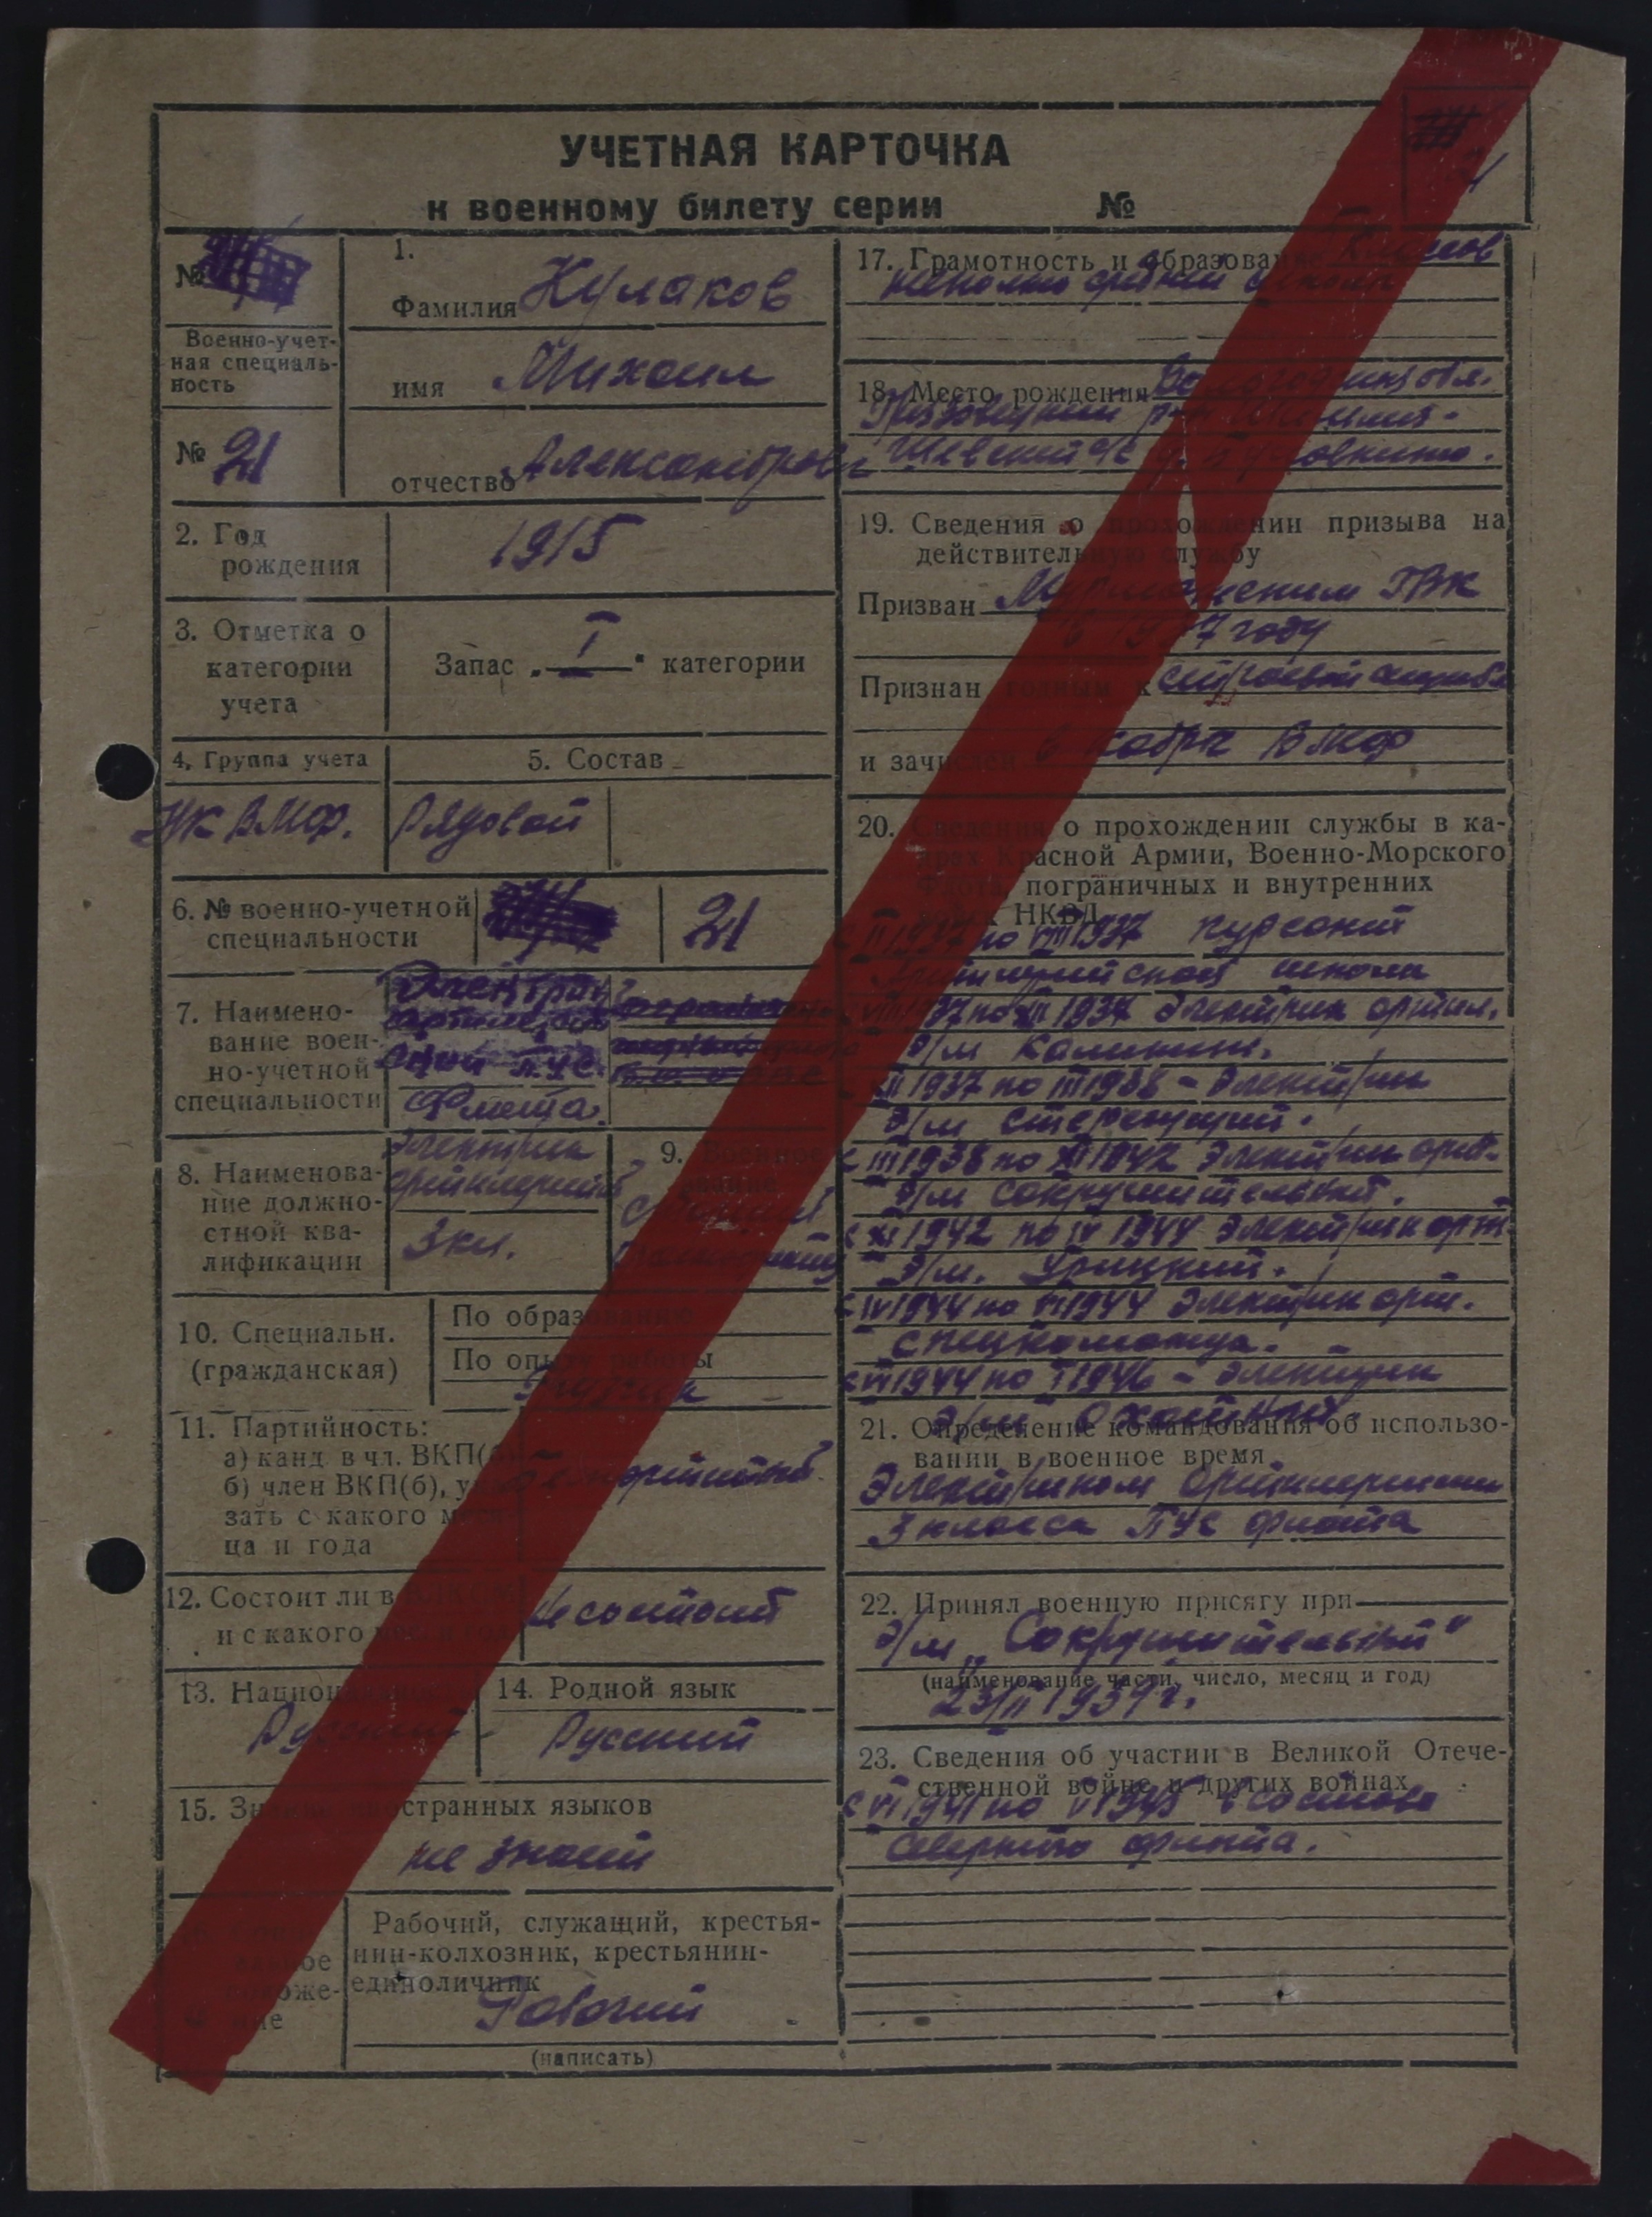 УЧЕТНАЯ КАРТОЧКА
к военному билету серии №
№
Военно-учет-
ная специаль-
ность
№ 21
1.
Фамилия Кулаков
имя Михаил
отчество Александрович
2. Год
рождения
1915
3. Отметка о
категории
учета
Запас „I“ категории
4. Группа учета
УК ВМФ.
5. Состав
Рядовой
6. № военно-учетной
специальности
21
7. Наимено-
вание воен-
но-учетной
специальности
Электрик
артиллерий
ский ПУС
Флота.
8. Наименова-
ние должно-
стной ква-
лификации
Электрик
артиллерийский
3 кл.
9. Военное
звание
Старший
10. Специальн.
(гражданская)
По образованию
По опыту работы
11. Партийность:
а) канд. в чл. ВКП(б)
б) член ВКП(б), ука-
зать с какого меся-
ца и года
Беспартийный
12. Состоит ли в ВЛКСМ
и с какого
Не состоит
13. Национальность
Русский
14. Родной язык
Русский
15. Знание иностранных языков
не знает
Рабочий, служащий, крестья-
нин-колхозник, крестьянин-
единоличник
Рабочий
(написать)
17. Грамотность и образование классов
неполно средней школы
18. Место рождения Вологодская обл.
Грязовецкий р-н
19. Сведения о прохождении призыва на
действительную службу
Призван Мурманским ГВК
в 1937 году
Признан годным к строевой службе
и зачислен в кадры ВМФ
20. Сведения о прохождении службы в ка-
драх Красной Армии, Военно-Морского
Флота, пограничных и внутренних
войск НКВД
с II 1937 по VIII 1937 курсант
школы
с VIII 1937 по XII 1937 Электрик артил.
э/м Калинин.
XII 1937 по III 1938 – Электрик
э/м Стерегущий.
с III 1938 по XI 1942 Электрик арт.
э/м Сокрушительный.
с XI 1942 по IV 1944 Электрик арт.
э/м. Урицкий.
с IV 1944 по VI 1944 Электрик арт.
спецкоманда.
с VI 1944 по I 1946 – Электрик
21. Определение командования об использо-
вании в военное время
Электриком артиллерийским
3 класса ПУС флота
22. Принял военную присягу при
э/м „Сокрушительный“
(наименование части, число, месяц и год)
23/II 1939 г.
23. Сведения об участии в Великой Отече-
ственной войне и других войнах
с VI 1941 по V 1945 в составе
Северного флота.